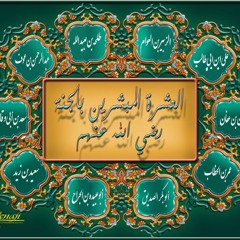 العشرة المبشرين بالجنة
رضي الله عنهم
الزبير بن العوام
طلحة بن عبيدالله
علي بن ابي طالب
عبدالرحمن بن عوف
سعد بن ابي وقاص
سعيد بن زيد
عمر بن الخطاب
أبو بكر الصديق
أبو عبيده بن الجراح